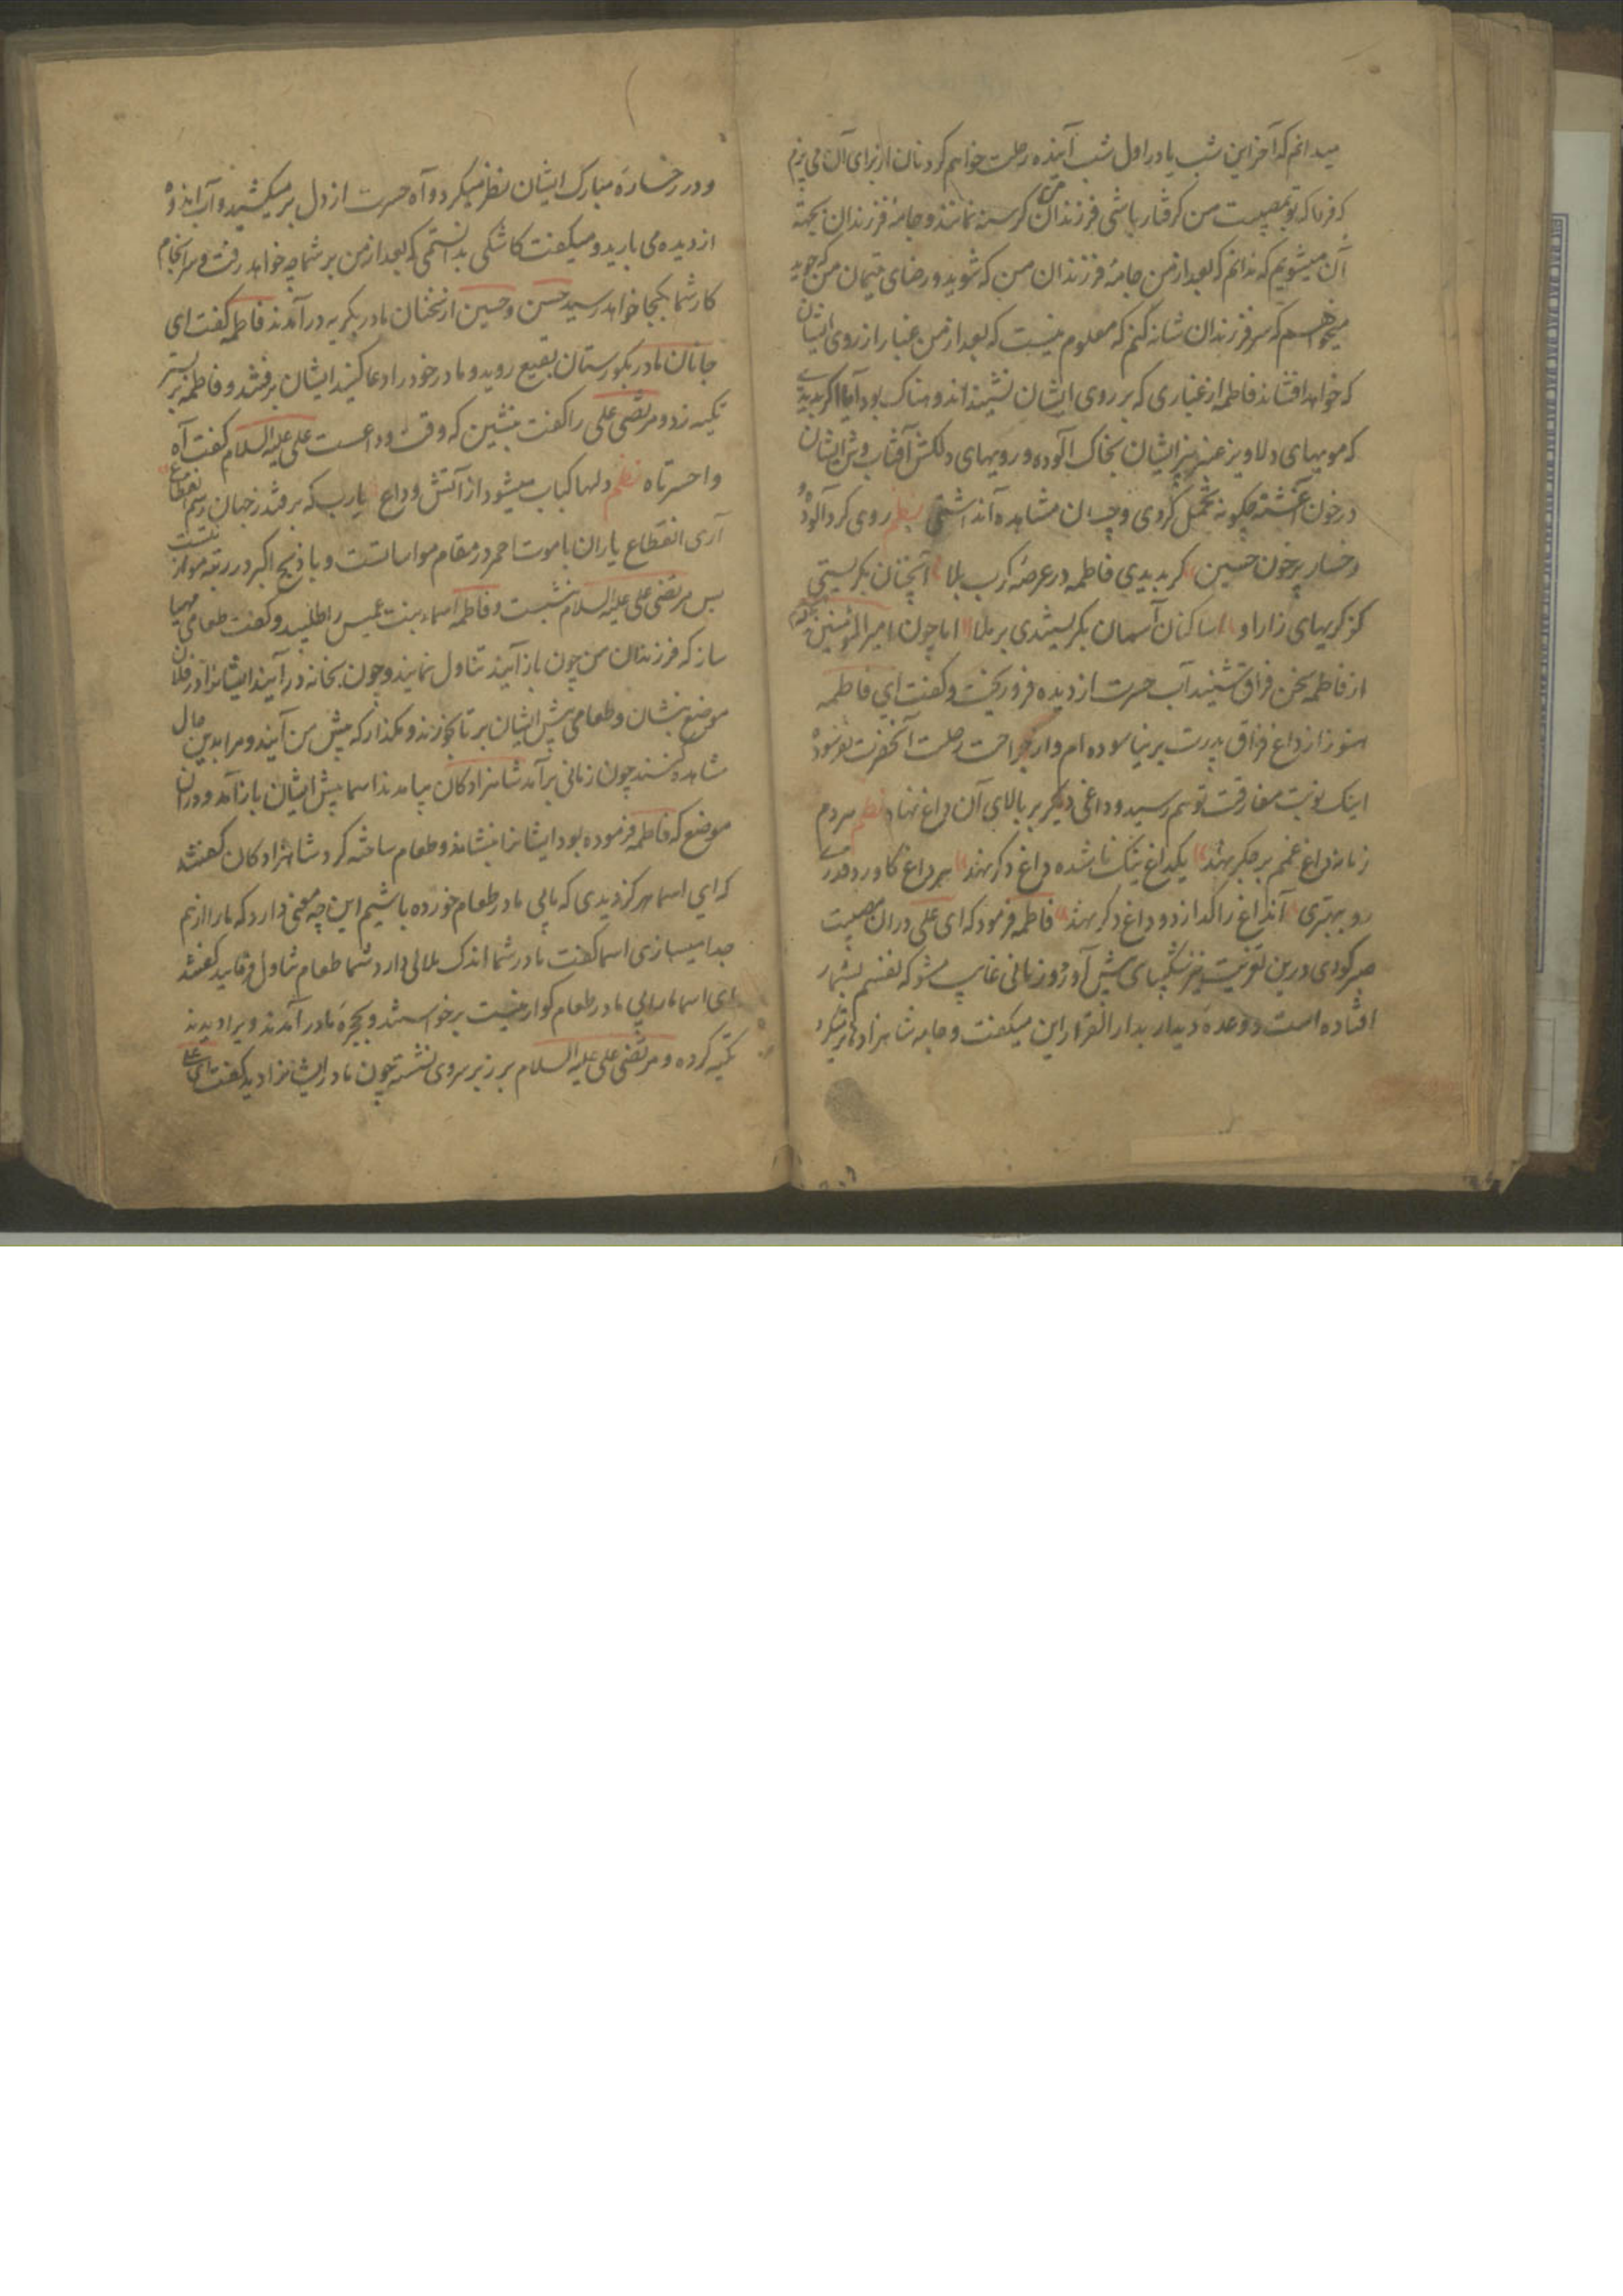 میدانم که آخر این شب یا در اول شب آینده رحلت خواهم کرد نان از برای آن می پزم
که فردا که تو بمصیبت من گرفتار باشی فرزندان من گرسنه نمانند و جامهٔ فرزندان بجهة
آن میشویم که ندانم که بعد از من جامهٔ فرزندان من که شوید و رضای یتیمان من که جوید
میخواهم که سر فرزندان شانه کنم که معلوم نیست که بعد از من غبار از روی ایشان
که خواهد افشاند فاطمه از غباری که بر روی ایشان نشیند اندوهناک بود آیا اگر بدیدی
که مویهای دلاویز عنبربیز ایشان بخاک آلوده و رویهای دلکش آفتاب وش ایشان
در خون آغشته چگونه تحمل کردی و چسان مشاهده آن داشتی نظم روی گرد آلود و
رخسار پرخون حسین گر بدیدی فاطمه در عرصهٔ کرب بلا آنچنان بگریستی
کز گریهای زار او ساکنان آسمان بگریستندی بر ملا اما چون امیر المؤمنین علی
از فاطمه سخن فراق شنید آب حسرت از دیده فرو ریخت و گفت ای فاطمه
هنوز از داغ فراق پدرت بر نیاسوده ام و از جراحت رحلت آنحضرت نغنوده
اینک نوبت مفارقت تو هم رسید و داغی دیگر بر بالای آن داغ نهاد نظم هر دم
زمانه داغ غمم بر جگر نهد یکداغ نیک ناشده داغ دگر نهد هر داغ کاورد قدری
رو ببهتری آنداغ را گذارد و داغ دگر نهد فاطمه فرمود که ای علی در ان مصیبت
صبر کردی درین تعزیت نیز شکیبای پیش آور و زمانی غایب مشو که نفسم بشمار
افتاده است و وعدهٔ دیدار بدار القرار این میگفت و جامه شاهزادها تر میکرد
و در رخسارهٔ مبارک ایشان نظر میکرد و آه حسرت از دل بر میکشید و آب اندوه
از دیده می بارید و میگفت کاشکی بدانستمی که بعد از من بر شما چه خواهد رفت و سر انجام
کار شما بکجا خواهد رسید حسن و حسین از سخنان مادر بگریه در آمدند فاطمه گفت ای
جانان مادر بگورستان بقیع روید و مادر خود را دعا کنید ایشان برفتند و فاطمه بر بستر
تکیه زد و مرتضی علی را گفت بنشین که وقت وداعست علی علیه السلام گفت آه
وا حسرتاه نظم دلها کباب میشود از آتش وداع یارب که بر فتد ز جهان رسم انقطاع
آری انقطاع یاران با موت احمر در مقام مواساتست و با ذبح اکبر در رتبه موازنت
پس مرتضی علی علیه السلام بنشست و فاطمه اسماء بنت عمیس را طلبید و گفت طعامی مهیا
ساز که فرزندان من چون باز آیند تناول نمایند و چون بخانه در آیند ایشانرا در فلان
موضع بنشان و طعامی پیش ایشان بر تا بخورند و مگذار که پیش من آیند و مرا بدین حال
مشاهده کنند چون زمانی بر آمد شاهزادکان بیامدند اسما پیش ایشان باز آمد و در ان
موضع که فاطمه فرموده بود ایشانرا بنشاند و طعام ساخته کرد شاهزادکان گفتند
که ای اسما هرگز دیدی که ما بی مادر طعام خورده باشیم این چه معنی دارد که ما را از هم
جدا میسازی اسما گفت مادر شما اندک ملالی دارد شما طعام تناول فرمایید گفتند
ای اسما ما را بی مادر طعام گوارا نیست برخواستند و بحجرهٔ مادر آمدند ویرا دیدند
تکیه کرده و مرتضی علی علیه السلام بر زبر سر وی نشسته چون مادر ایشانرا دید گفت ای علی